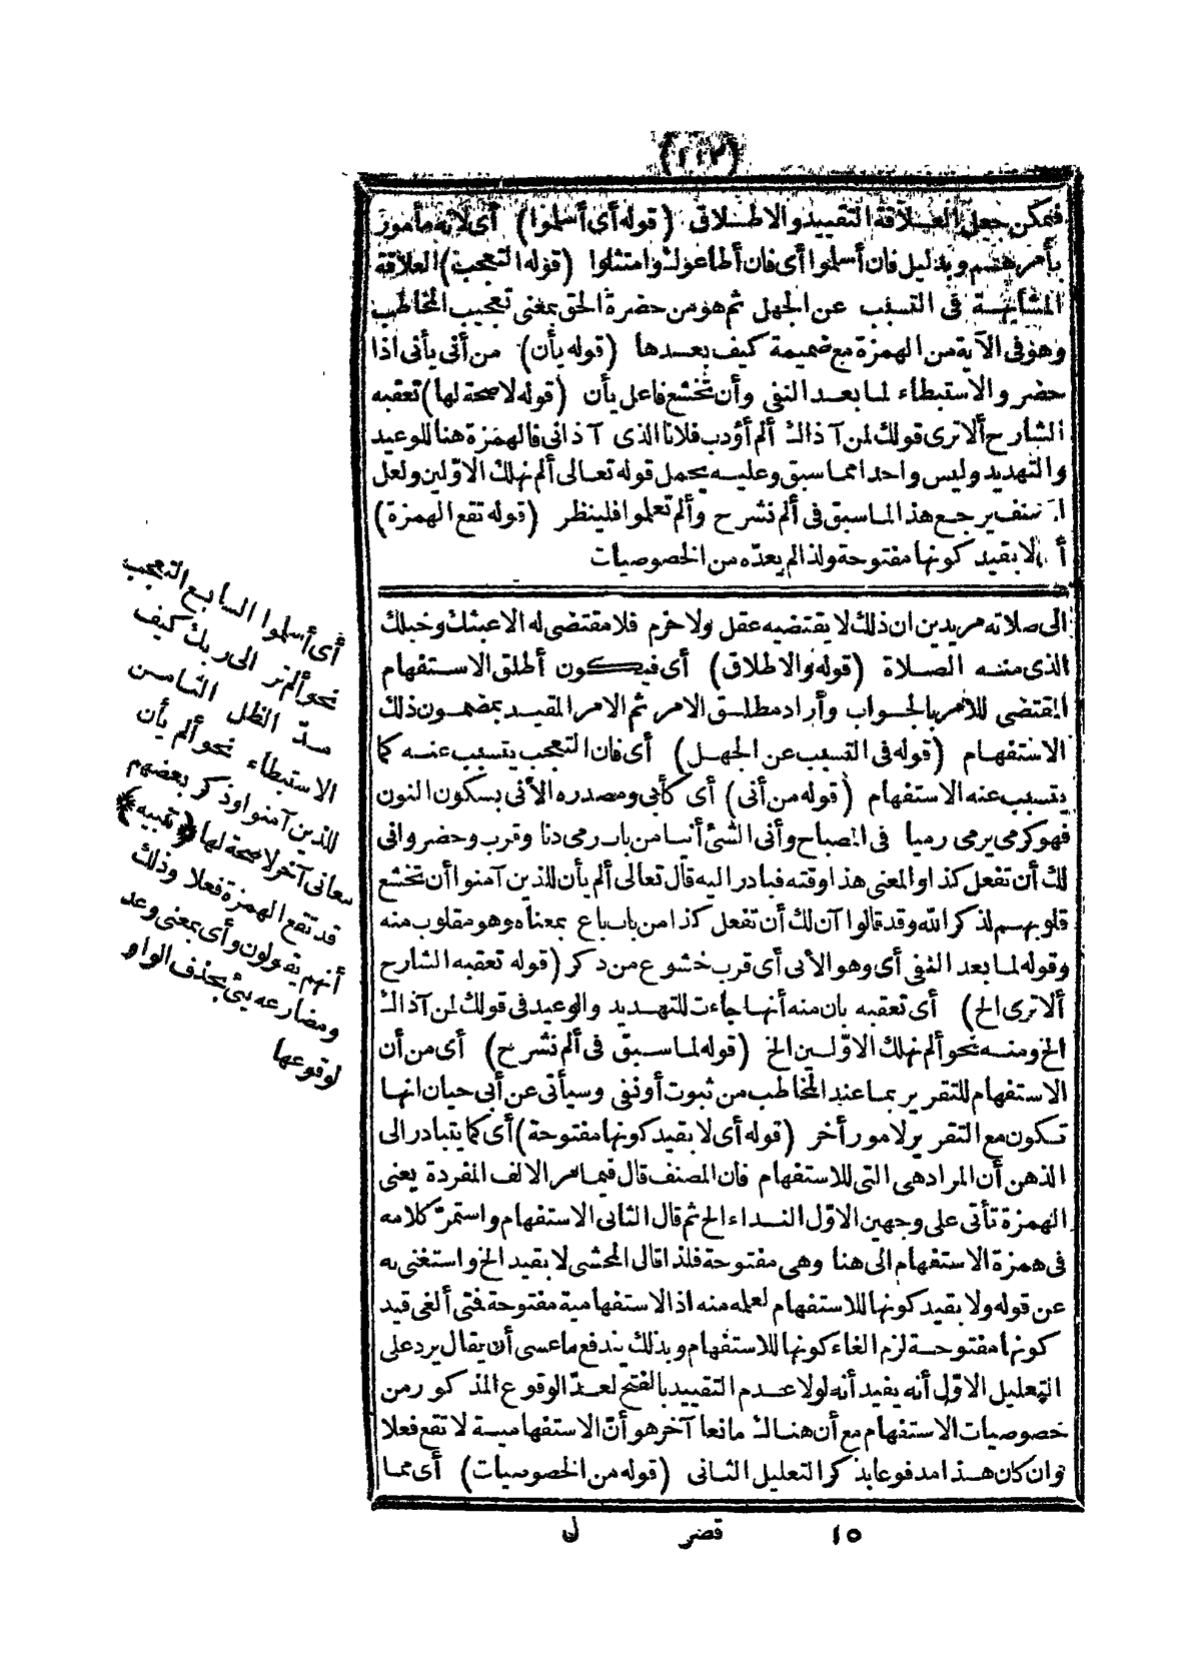 (١١٣)
فيمكن جعل العلاقة التقييد والاطلاق (قوله أى أسلموا) أى لانه مأمور
بأمرهم وبدليل فان أسلموا أى فان أطاعوك وامتثلوا (قوله التعجب) العلاقة
المشابهة فى التسبب عن الجهل ثم هو من حضرة الحق بمعنى تعجيب المخاطب
وهو فى الآية من الهمزة مع ضميمة كيف بعدها (قوله يأن) من أنى يأنى اذا
حضر والاستبطاء لما بعد النفى وأن تخشع فاعل يأن (قوله لا صحة لها) تعقبه
الشارح ألا ترى قولك لمن آذاك ألم أؤدب فلانا الذى آذانى فالهمزة هنا للوعيد
والتهديد وليس واحدا مما سبق وعليه يحمل قوله تعالى ألم نهلك الاوّلين ولعل
المصنف يرجع هذا لما سبق فى ألم نشرح وألم تعلموا فلينظر (قوله تقع الهمزة)
أى لا بقيد كونها مفتوحة ولذا لم يعدّه من الخصوصيات
الى صلاته مريدين ان ذلك لا يقتضيه عقل ولا حزم فلا مقتضى له الا عبثك وخبلك
الذى منته الصلاة (قوله والاطلاق) أى فيكون أطلق الاستفهام
المقتضى للامر بالجواب وأراد مطلق الامر ثم الامر المقيد بمضمون ذلك
الاستفهام (قوله فى التسبب عن الجهل) أى فان التعجب يتسبب عنه كما
يتسبب عنه الاستفهام (قوله من أنى) أى كأبى ومصدره الأنى بسكون النون
فهو كرمى يرمى رميا فى المصباح وأنى الشئ أنيا من باب رمى دنا وقرب وحضر وانى
لك أن تفعل كذا والمعنى هذا وقته فبادر اليه قال تعالى ألم يأن للذين آمنوا أن تخشع
قلوبهم لذكر الله وقد قالوا آن لك أن تفعل كذا من باب باع بمعناه وهو مقلوب منه
وقوله لما بعد النفى أى وهو الأنى أى قرب خشوع من ذكر (قوله تعقبه الشارح
ألا ترى الخ) أى تعقبه بان منه أنها جاءت للتهديد والوعيد فى قولك لمن آذاك
الخ ومنه نحو ألم نهلك الاوّلين الخ (قوله لما سبق فى ألم نشرح) أى من أن
الاستفهام للتقرير بما عند المخاطب من ثبوت أو نفى وسيأتى عن أبى حيان انها
تكون مع التقرير لامور أخر (قوله أى لا بقيد كونها مفتوحة) أى كما يتبادر الى
الذهن أن المراد هى التى للاستفهام فان المصنف قال فيما مر الالف المفردة يعنى
الهمزة تأتى على وجهين الاوّل النداء الخ ثم قال الثانى الاستفهام واستمرّ كلامه
فى همزة الاستفهام الى هنا وهى مفتوحة فلذا قال المحشى لا بقيد الخ واستغنى به
عن قوله ولا بقيد كونها للاستفهام لعلمه منه اذ الاستفهامية مفتوحة فتى ألغى قيد
كونها مفتوحة لزم الغاء كونها للاستفهام وبذلك يندفع ما عسى أن يقال يرد على
التعليل الاوّل أنه يفيد أنه لولا عدم التقييد بالفتح لعدّ الوقوع المذكور من
خصوصيات الاستفهام مع أن هناك مانعا آخر هو أنّ الاستفهامية لا تقع فعلا
وان كان هذا مدفوعا بذكر التعليل الثانى (قوله من الخصوصيات) أى مما
أى أسلموا السابع التعجب
نحو ألم تر الى ربك كيف
مدّ الظل الثامن
الاستبطاء نحو ألم يأن
للذين آمنوا وذكر بعضهم
معانى آخر لا صحة لها (تنبيه)
قد تقع الهمزة فعلا وذلك
أنهم يقولون وأى بمعنى وعد
ومضارعه يئى بحذف الواو
لوقوعها
١٥ قصر ل